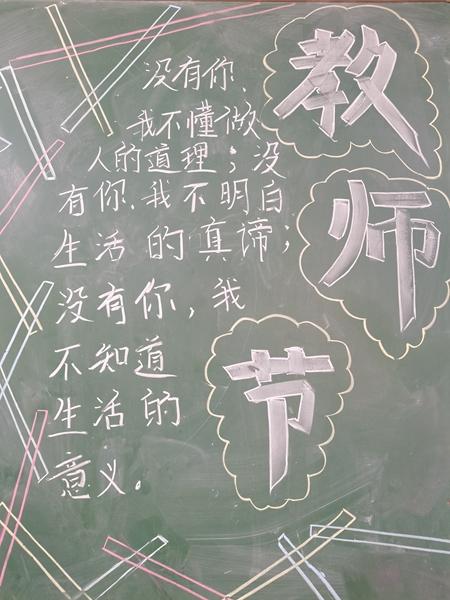 教师节
没有你，
我不懂做
人的道理；没
有你，我不明白
生活的真谛；
没有你，我
不知道
生活的
意义。